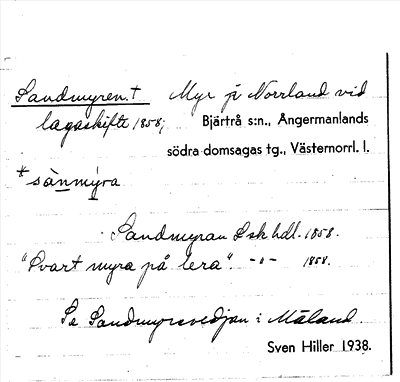 Sandmyren.† Myr på Norrland vid
lagaskifte 1858; Bjärtrå s:n., Ångermanlands
södra domsagas tg., Västernorrl. l.
*sànmýra
Sandmyran Lsk hdl. 1858.
"Svart myra på lera". -"- 1858.
Se Sandmyrsvedjan i Måland.
Sven Hiller 1938.